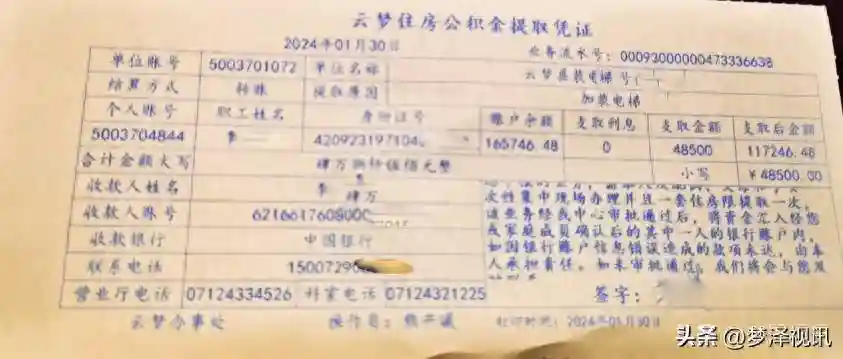 云梦住房公积金提取凭证
2024年01月30日 业务流水号: 00093000000473336638
单位账号 5003701072 单位名称 云梦县装电梯
结算方式 转账 提取原因 加装电梯
个人账号 职工姓名 身份证号 账户余额 支取利息 支取金额 支取后金额
5003704844 李 420923197104 165746.48 0 48500 117246.48
合计金额大写 肆万捌仟伍佰元整 小写 ¥48500.00
收款人姓名 李
肆万
次性集中现场办理并且一套住房限提取一次,
收款人账号 6216617608000
该业务经我中心审批通过后,将资金汇入经您
或家庭成员确认后的其中一人的银行账户内,
收款银行 中国银行
如因银行账户信息错误造成的款项未达,由本
联系电话 15007290
人承担责任。如未审批通过,我们将会与您及
营业厅电话 07124334526 科室电话 07124321225 签字:
云梦办事处 操作员: 打印时间: 2024年01月30日
头条 @梦泽视讯